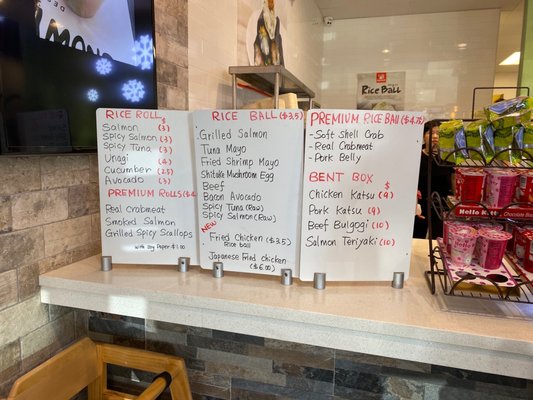 RICE ROLL
Salmon (3)
Spicy Salmon (3)
Spicy Tuna (3)
Unagi (4)
Cucumber (2.5)
Avocado (3)
PREMIUM ROLLS
Real Crabmeat
Smoked Salmon
Grilled Spicy Scallops
with Soy Paper $1.00
RICE BALL ($3.5)
Grilled Salmon
Tuna Mayo
Fried Shrimp Mayo
Shitake Mushroom Egg
Beef
Bacon Avocado
Spicy Tuna (Raw)
Spicy Salmon (Raw)
NEW
Fried Chicken ($3.5)
Rice ball
Japanese Fried chicken
($6.00)
PREMIUM RICE BALL ($4.75)
-Soft Shell Crab
-Real Crabmeat
-Pork Belly
BENT BOX $
Chicken Katsu (9)
Pork Katsu (9)
Beef Bulgogi (10)
Salmon Teriyaki (10)
Rice Ball
Hello Kitty